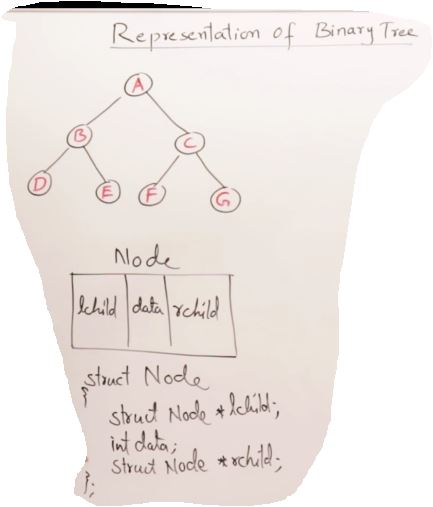 Representation of Binary Tree
A
B
C
D
E
F
G
Node
lchild data rchild
struct Node
{
struct Node *lchild;
int data;
struct Node *rchild;
};